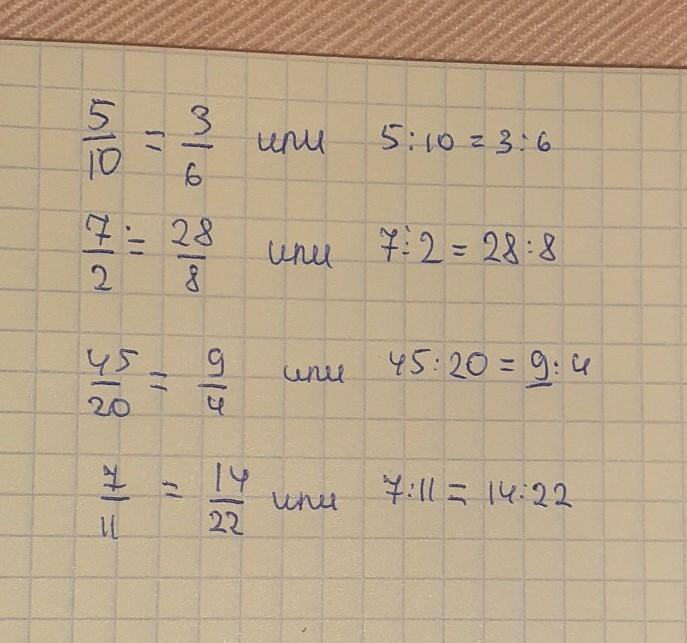 5/10 = 3/6 или 5:10 = 3:6
7/2 = 28/8 или 7:2 = 28:8
45/20 = 9/4 или 45:20 = 9:4
7/11 = 14/22 или 7:11 = 14:22